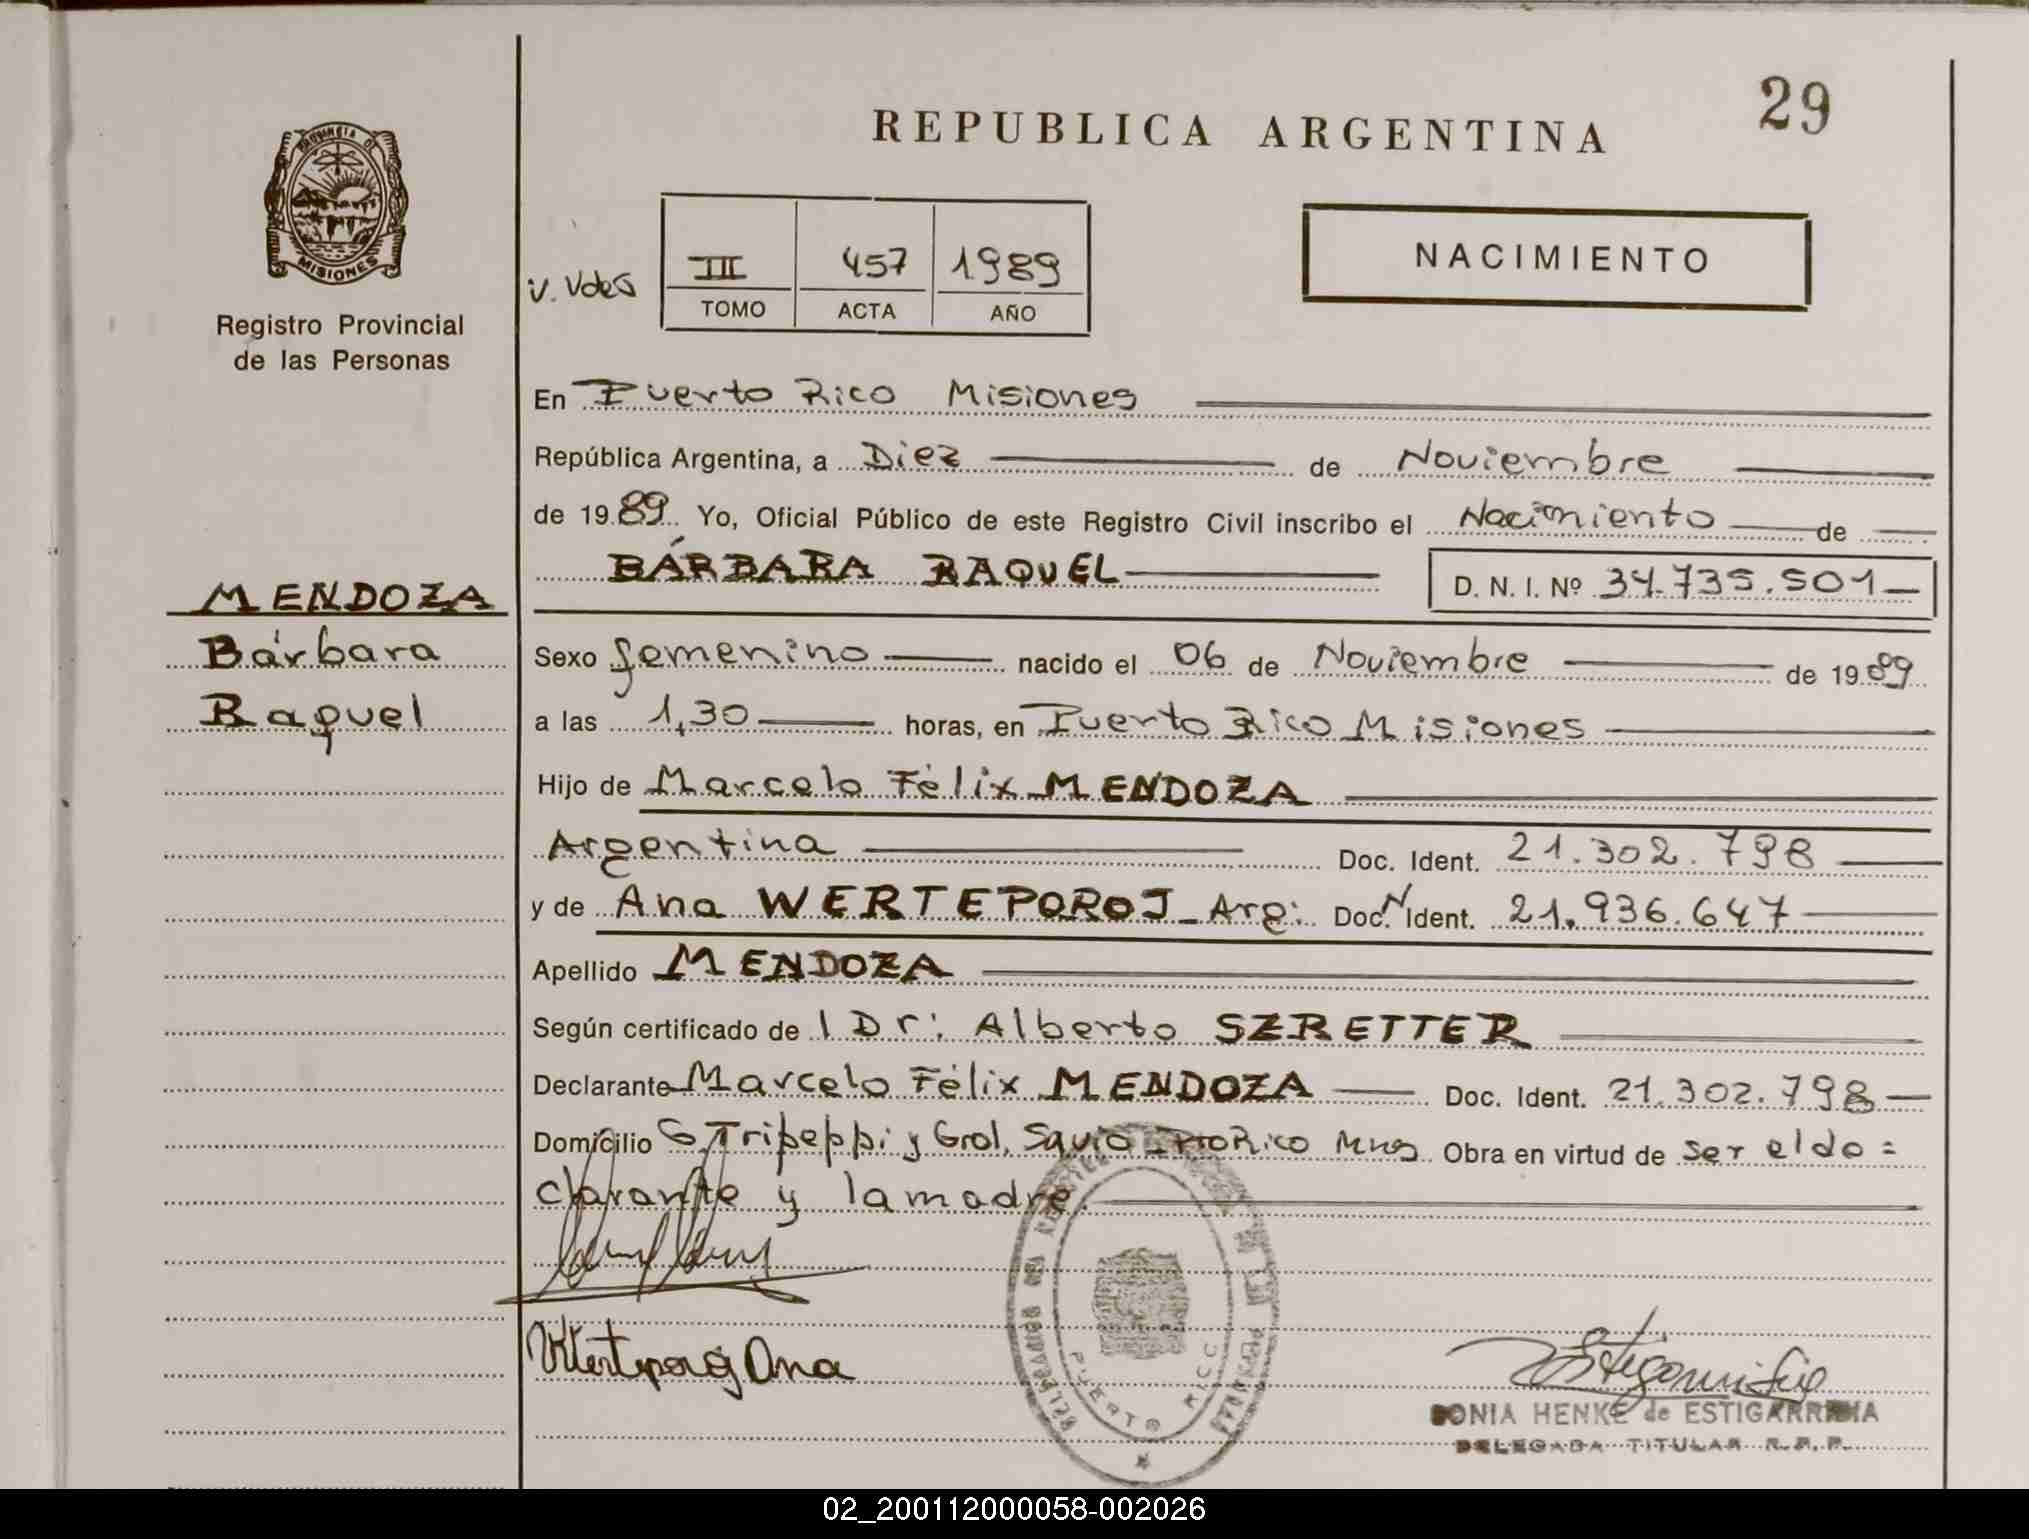 29
REPUBLICA ARGENTINA
PROVINCIA DE
MISIONES
Registro Provincial
de las Personas
III 457 1989
TOMO ACTA AÑO
NACIMIENTO
En Puerto Rico Misiones
República Argentina, a Diez de Noviembre
de 1989 Yo, Oficial Público de este Registro Civil inscribo el Nacimiento de
BÁRBARA RAQUEL D. N. I. Nº 34.735.501
MENDOZA
Bárbara
Raquel
Sexo femenino nacido el 06 de Noviembre de 1989
a las 1,30 horas, en Puerto Rico Misiones
Hijo de Marcelo Félix MENDOZA
Argentina Doc. Ident. 21.302.798
y de Ana WERTEPOROJ Arg: Doc. N Ident. 21.936.647
Apellido MENDOZA
Según certificado de l Dr: Alberto SZRETTER
Declarante Marcelo Félix MENDOZA Doc. Ident. 21.302.798
Domicilio Tripeppi y Grol. Pto Rico Mnes Obra en virtud de ser el de =
clarante y la madre.
Werteporoj Ana
PUERTO RICO
SONIA HENKE de ESTIGARRIBIA
DELEGADA TITULAR R. P. P.
02_200112000058-002026